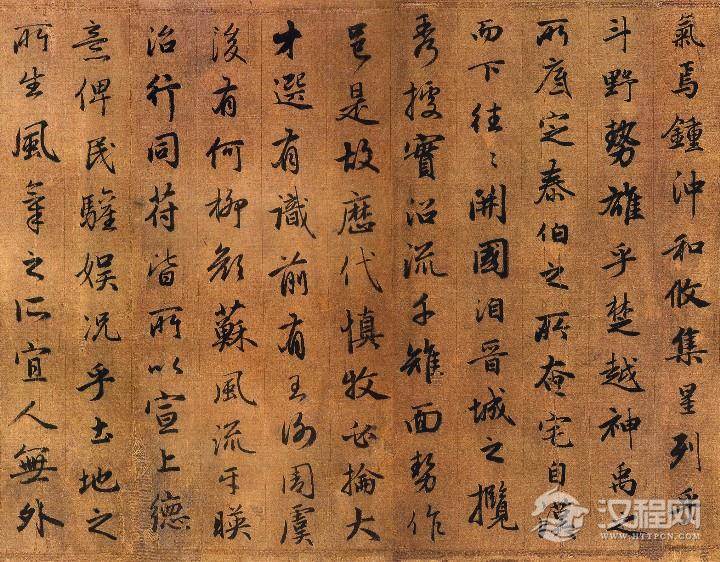 氣焉鍾沖和攸集星列乎
斗野勢雄乎楚越神禹之
所底定泰伯之所奄宅自漢
而下往々開國洎晉城之攬
秀據實沿流千雉面勢作
邑是故歷代慎牧必掄大
才選有識前有王謝周虞
後有何柳顏蘇風流互暎
治行同符皆所以宣上德
意俾民驩娛況乎土地之
所生風氣之所宜人無外
汉程网
WWW.HTTPCN.COM